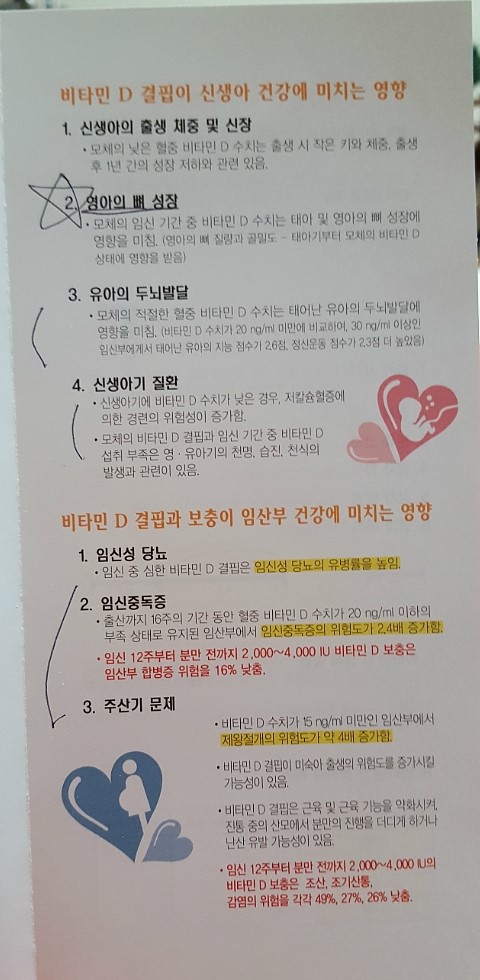 비타민 D 결핍이 신생아 건강에 미치는 영향
1. 신생아의 출생 체중 및 신장
• 모체의 낮은 혈중 비타민 D 수치는 출생 시 작은 키와 체중, 출생
후 1년 간의 성장 저하와 관련 있음.
2. 영아의 뼈 성장
• 모체의 임신 기간 중 비타민 D 수치는 태아 및 영아의 뼈 성장에
영향을 미침. (영아의 뼈 질량과 골밀도 - 태아기부터 모체의 비타민 D
상태에 영향을 받음)
3. 유아의 두뇌발달
• 모체의 적절한 혈중 비타민 D 수치는 태어난 유아의 두뇌발달에
영향을 미침. (비타민 D 수치가 20 ng/ml 미만에 비교하여, 30 ng/ml 이상인
임신부에게서 태어난 유아의 지능 점수가 2.6점, 정신운동 점수가 2.3점 더 높았음)
4. 신생아기 질환
• 신생아기에 비타민 D 수치가 낮은 경우, 저칼슘혈증에
의한 경련의 위험성이 증가함.
• 모체의 비타민 D 결핍과 임신 기간 중 비타민 D
섭취 부족은 영·유아기의 천명, 습진, 천식의
발생과 관련이 있음.
비타민 D 결핍과 보충이 임산부 건강에 미치는 영향
1. 임신성 당뇨
• 임신 중 심한 비타민 D 결핍은 임신성 당뇨의 유병률을 높임.
2. 임신중독증
• 출산까지 16주의 기간 동안 혈중 비타민 D 수치가 20 ng/ml 이하의
부족 상태로 유지된 임산부에서 임신중독증의 위험도가 2.4배 증가함.
• 임신 12주부터 분만 전까지 2,000~4,000 IU 비타민 D 보충은
임산부 합병증 위험을 16% 낮춤.
3. 주산기 문제
• 비타민 D 수치가 15 ng/ml 미만인 임산부에서
제왕절개의 위험도가 약 4배 증가함.
• 비타민 D 결핍이 미숙아 출생의 위험도를 증가시킬
가능성이 있음.
• 비타민 D 결핍은 근육 및 근육 기능을 약화시켜,
진통 중의 산모에서 분만의 진행을 더디게 하거나
난산 유발 가능성이 있음.
• 임신 12주부터 분만 전까지 2,000~4,000 IU의
비타민 D 보충은 조산, 조기산통,
감염의 위험을 각각 49%, 27%, 26% 낮춤.